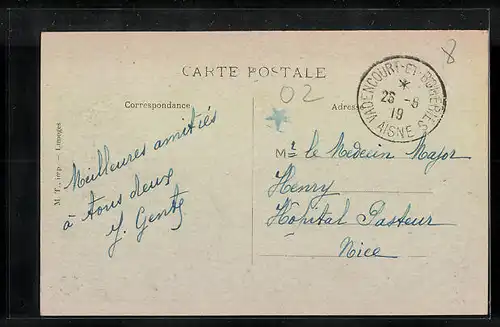 CARTE POSTALE
Correspondance
Adresse
M. T., imp. — Limoges
Meilleures amitiés
à tous deux
J. Gente
VADENCOURT-ET-BOHERIES
*
26 -8
19
AISNE
8
02
Mr le Medecin Major
Henry
Hôpital Pasteur
Nice